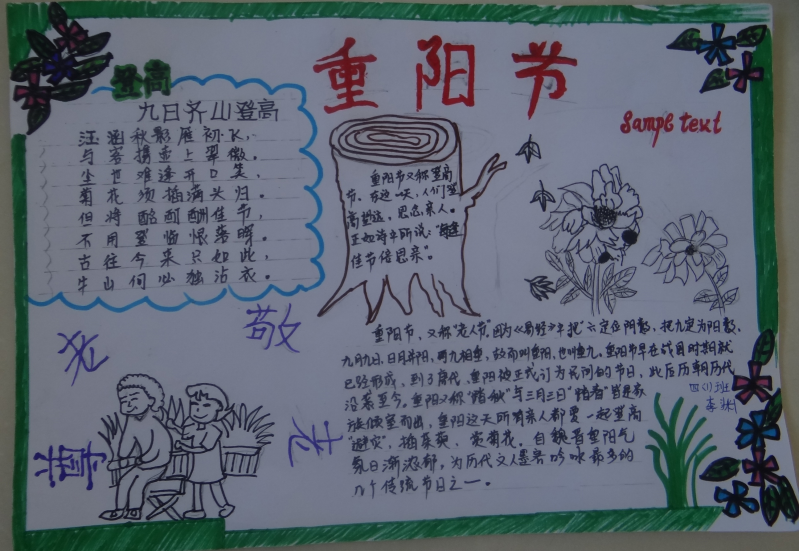 重阳节
登高
Sampl text
九日齐山登高
江涵秋影雁初飞,
与客携壶上翠微。
尘世难逢开口笑,
菊花须插满头归。
但将酩酊酬佳节,
不用登临恨落晖。
古往今来只如此,
牛山何必独沾衣。
重阳节又称登高
节,在这一天,人们登
高望远,思念亲人。
正如诗中所说:"每逢
佳节倍思亲"。
敬
老
尊
老
重阳节,又称"老人节"因为《易经》中把"六"定位阴数,把九定为阳数,
九月九日,日月并阳,两九相重,故而叫重阳,也叫重九。重阳节早在战国时期就
已经形成,到了唐代,重阳被正式订为民间的节日,此后历朝历代
沿袭至今。重阳又称"踏秋"与三月三日"踏春"皆是家
族倾室而出,重阳这天所有亲人都要一起登高
"避灾",插茱萸、赏菊花。自魏晋重阳气
氛日渐浓郁,为历代文人墨客吟咏最多的
几个传统节日之一。
四(1)班
李